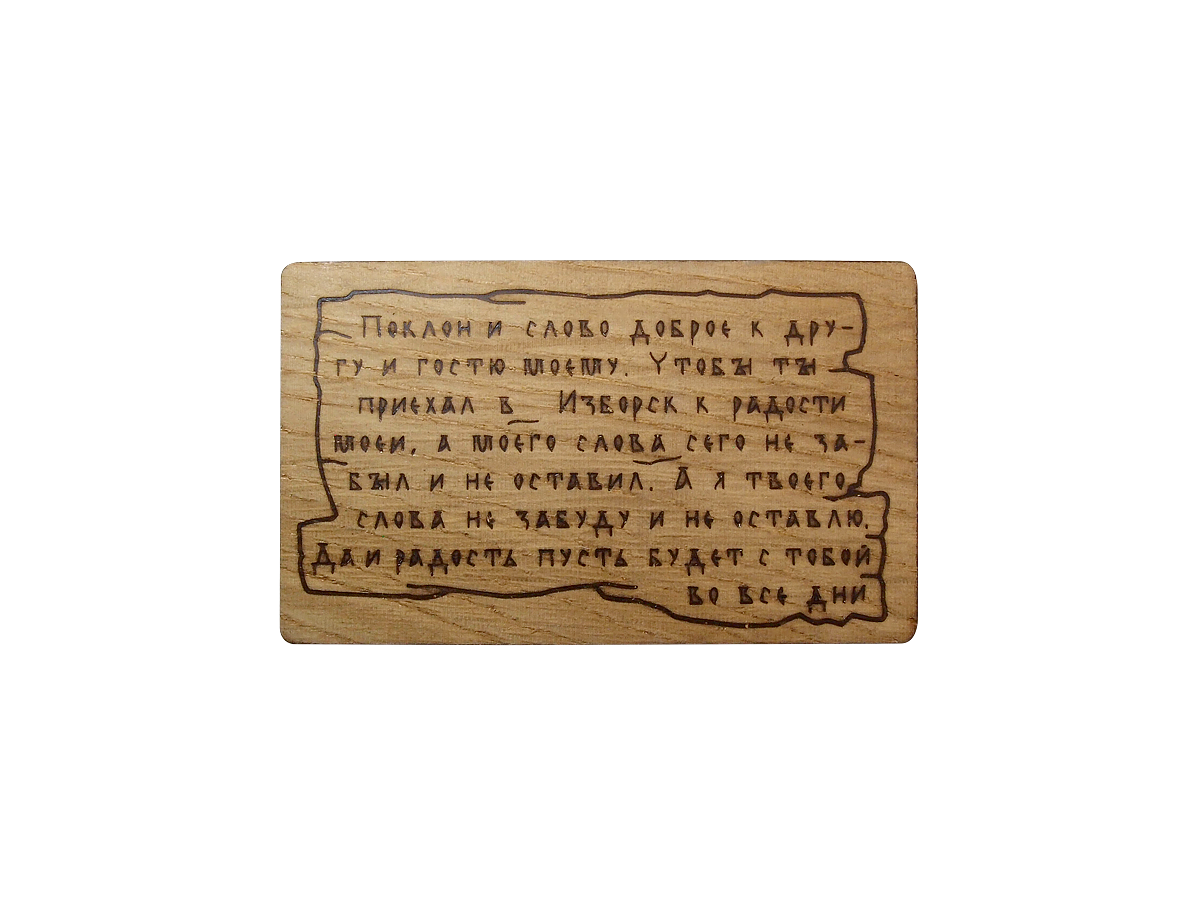 Поклон и слово доброе к дру-
гу и гостю моему. Чтобы ты
приехал в Изборск к радости
моеи, а моего слова сего не за-
был и не оставил. А я твоего
слова не забуду и не оставлю.
Да и радость пусть будет с тобой
во все дни